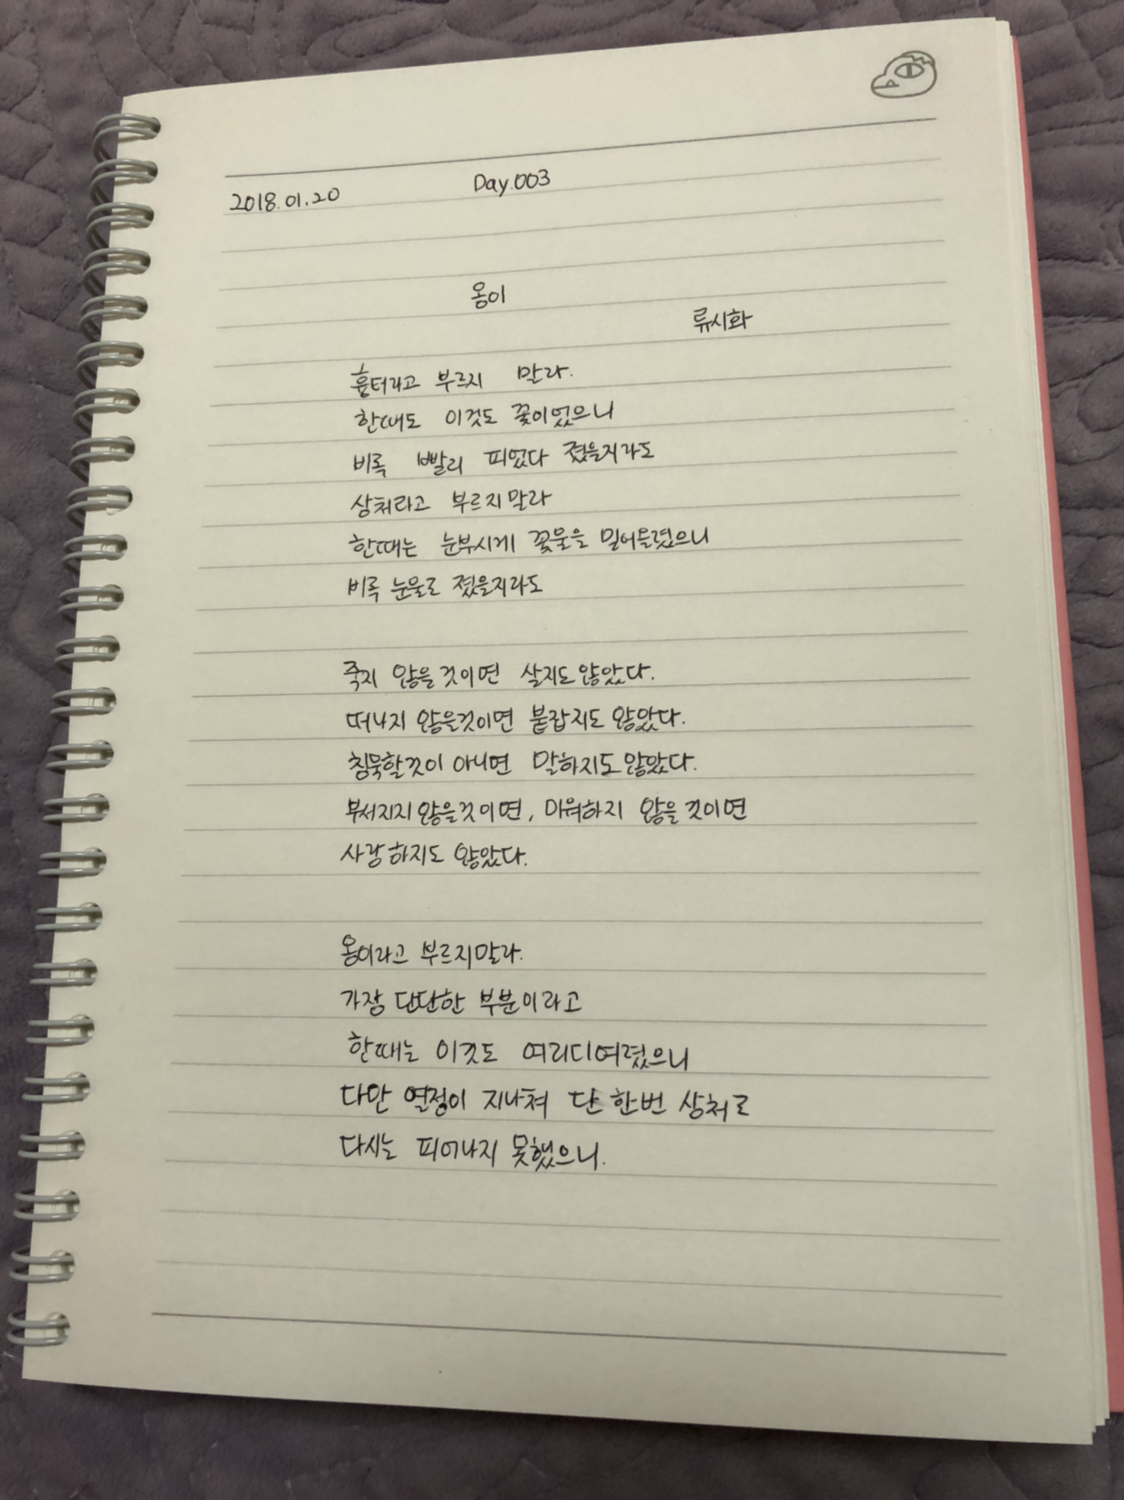 2018.01.20 Day.003
옹이
류시화
흉터라고 부르지 말라.
한때도 이것도 꽃이었으니
비록 빨리 피었다 졌을지라도
상처라고 부르지말라
한때는 눈부시게 꽃물을 밀어올렸으니
비록 눈물로 졌을지라도
죽지 않을것이면 살지도않았다.
떠나지 않을것이면 붙잡지도 않았다.
침묵할것이 아니면 말하지도않았다.
부서지지않을것이면, 미워하지 않을것이면
사랑하지도 않았다.
옹이라고 부르지말라.
가장 단단한 부분이라고
한때는 이것도 여리디여렸으니
다만 열정이 지나쳐 단 한번 상처로
다시는 피어나지 못했으니.